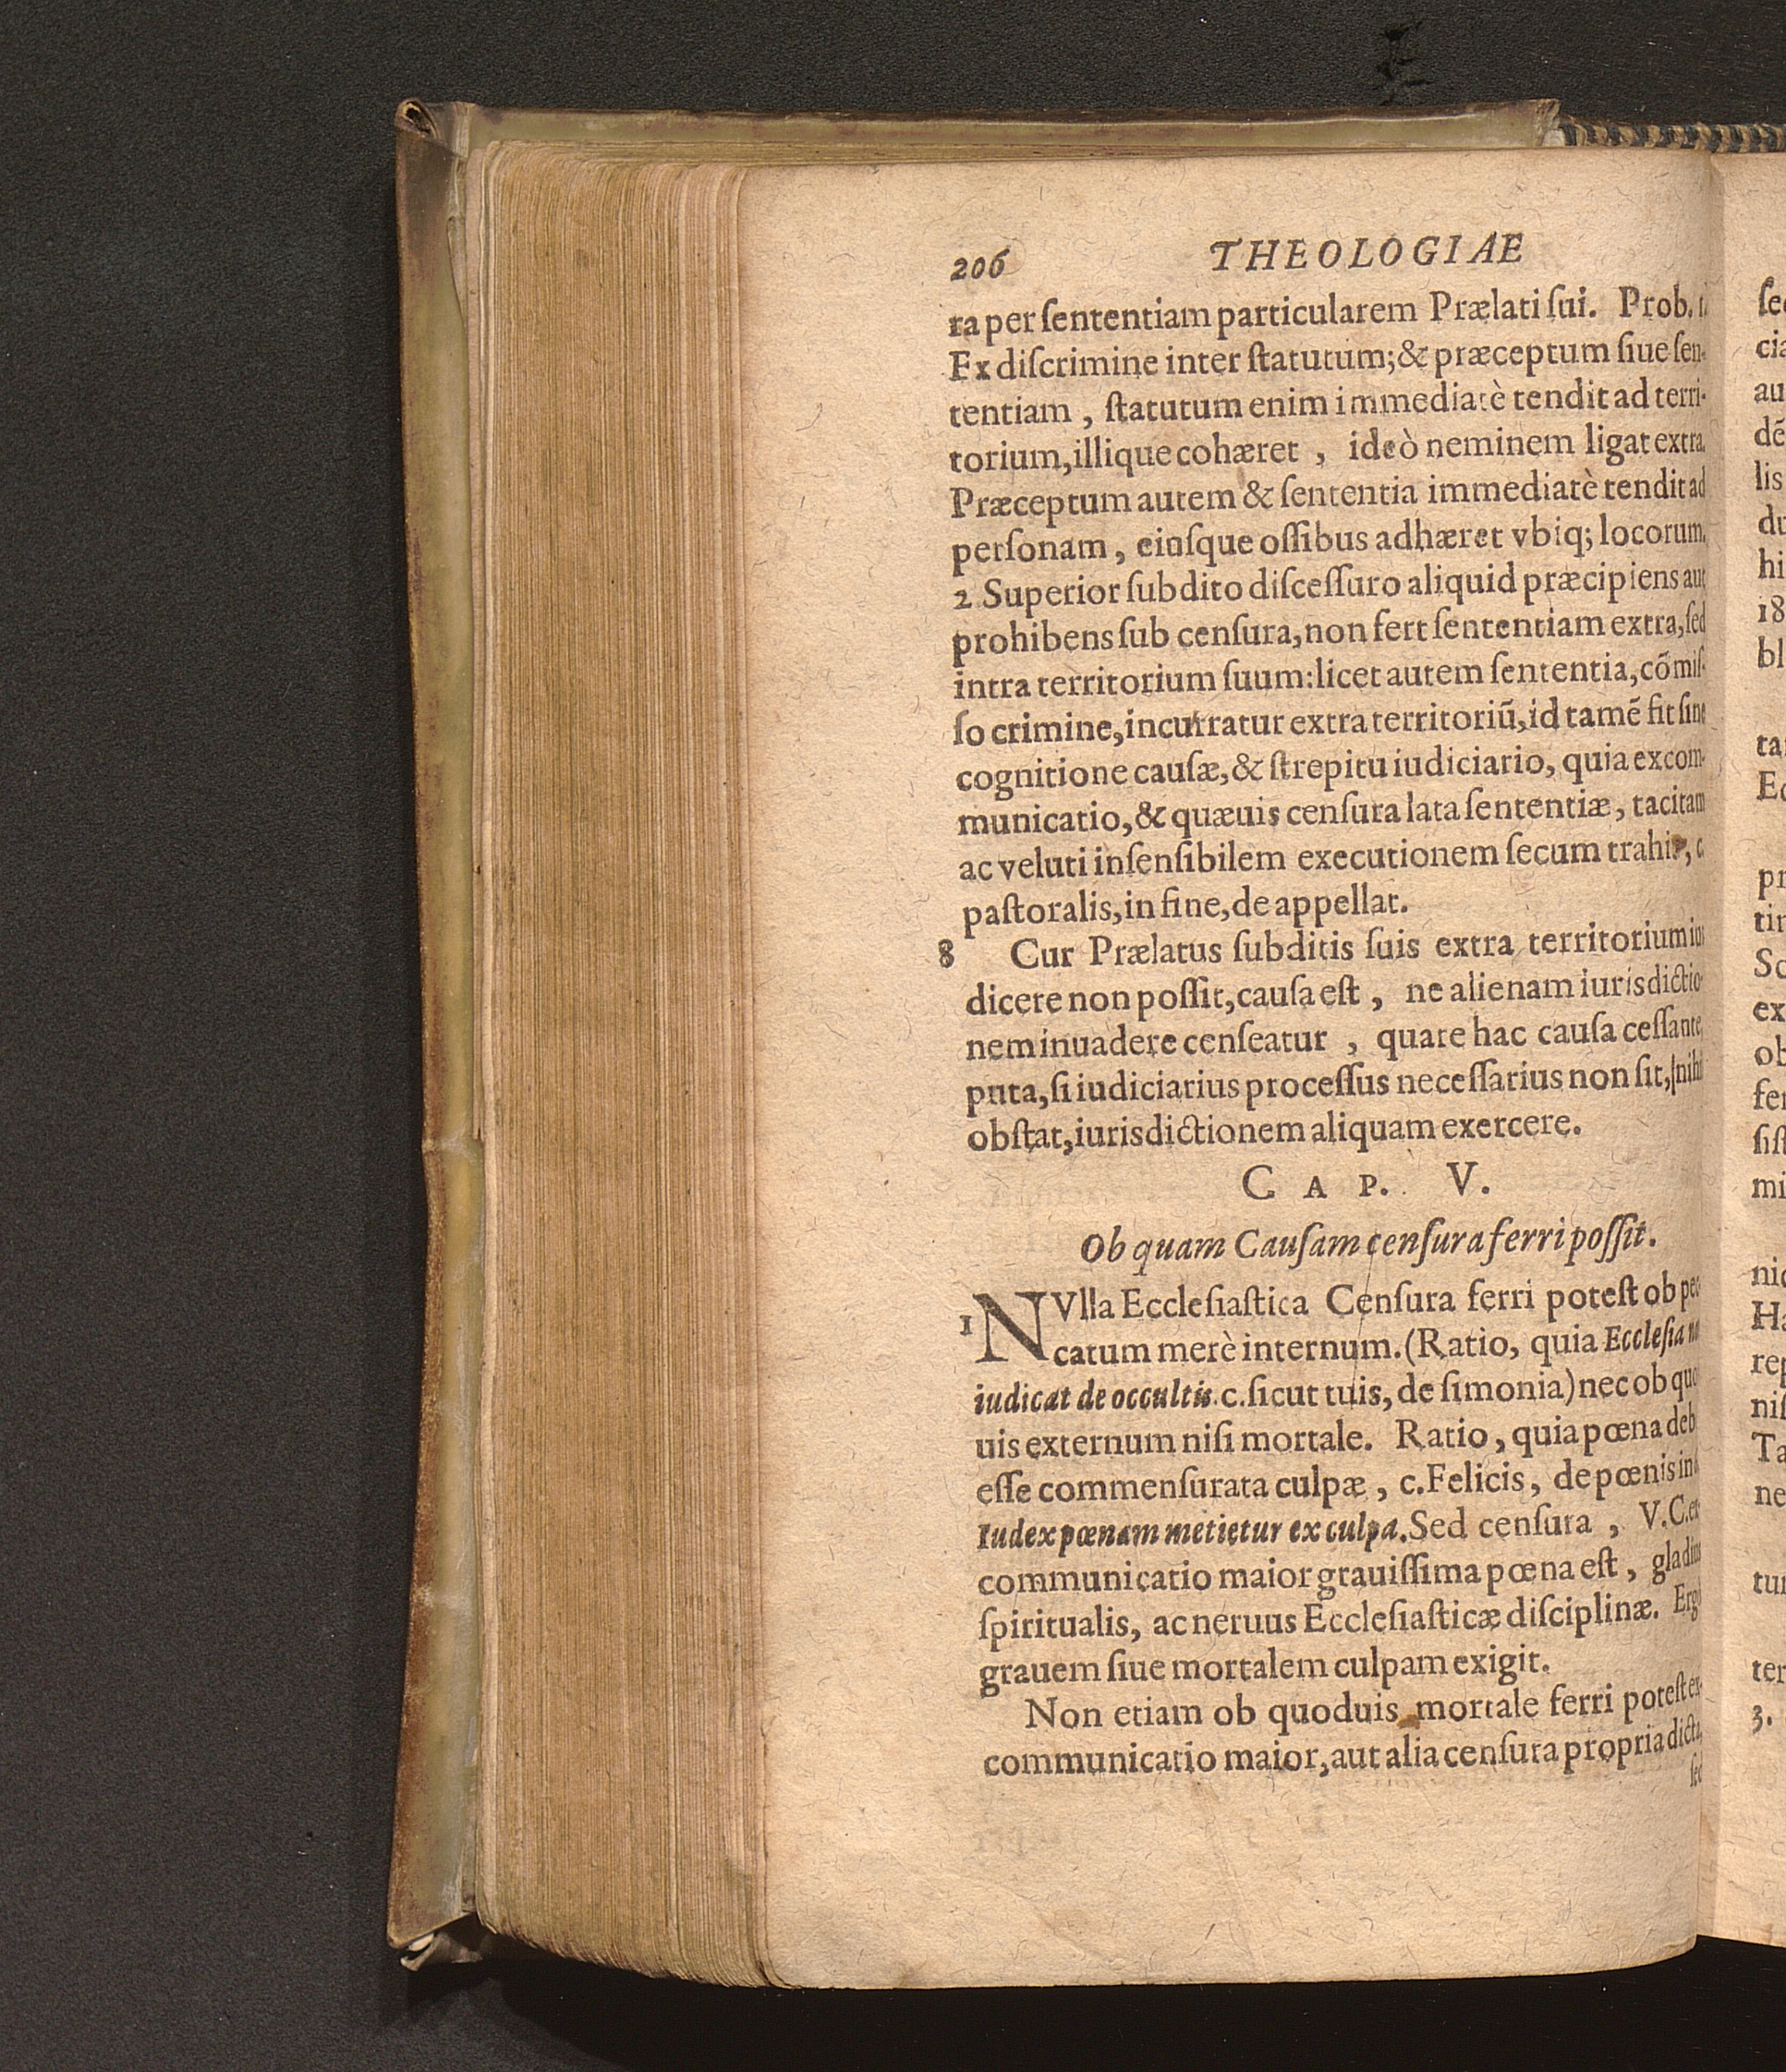 206 THEOLOGIAE
ra per ſententiam particularem Prælati ſui. Prob. 1.
Ex diſcrimine inter ſtatutum; & præceptum ſiue ſen-
tentiam, ſtatutum enim immediatè tendit ad terri-
torium, illique cohæret, ideò neminem ligat extra.
Præceptum autem & ſententia immediatè tendit ad
perſonam, eiuſque oſſibus adhæret vbiq; locorum.
2 Superior ſubdito diſceſſuro aliquid præcipiens aut
prohibens ſub cenſura, non fert ſententiam extra, ſed
intra territorium ſuum: licet autem ſententia, cõmiſ-
ſo crimine, incurratur extra territoriũ, id tamẽ fit ſine
cognitione cauſæ, & ſtrepitu iudiciario, quia excom-
municatio, & quæuis cenſura lata ſententiæ, tacitam
ac veluti inſenſibilem executionem ſecum trahit, c.
paſtoralis, in fine, de appellat.
8 Cur Prælatus ſubditis ſuis extra territorium ius
dicere non poſſit, cauſa eſt, ne alienam iurisdictio-
nem inuadere cenſeatur, quare hac cauſa ceſſante,
puta, ſi iudiciarius proceſſus neceſſarius non ſit, nihil
obſtat, iurisdictionem aliquam exercere.
CAP. V.
Ob quam Cauſam cenſura ferri poſſit.
1 NVlla Eccleſiaſtica Cenſura ferri poteſt ob pec-
catum merè internum. (Ratio, quia Eccleſia
iudicat de occultis. c. ſicut tuis, de ſimonia) nec ob quod
uis externum niſi mortale. Ratio, quia pœna
eſſe commenſurata culpæ, c. Felicis, de pœnis
Iudex pœnam metietur ex culpa. Sed cenſura, V.C. ex
communicatio maior grauiſſima pœna eſt, gladius
ſpiritualis, ac neruus Eccleſiaſticæ diſciplinæ. Ergo
grauem ſiue mortalem culpam exigit.
Non etiam ob quoduis mortale ferri poteſt ex-
communicatio maior, aut alia cenſura propria dicta,
ſed
ſec
cia
au
dẽ
lis
du
hi
18
bl
ta
Ec
pr
tin
Sc
ex
ob
fer
ſiſt
mi
nic
Ha
rep
niſ
Ta
ne
tur
ter
3.